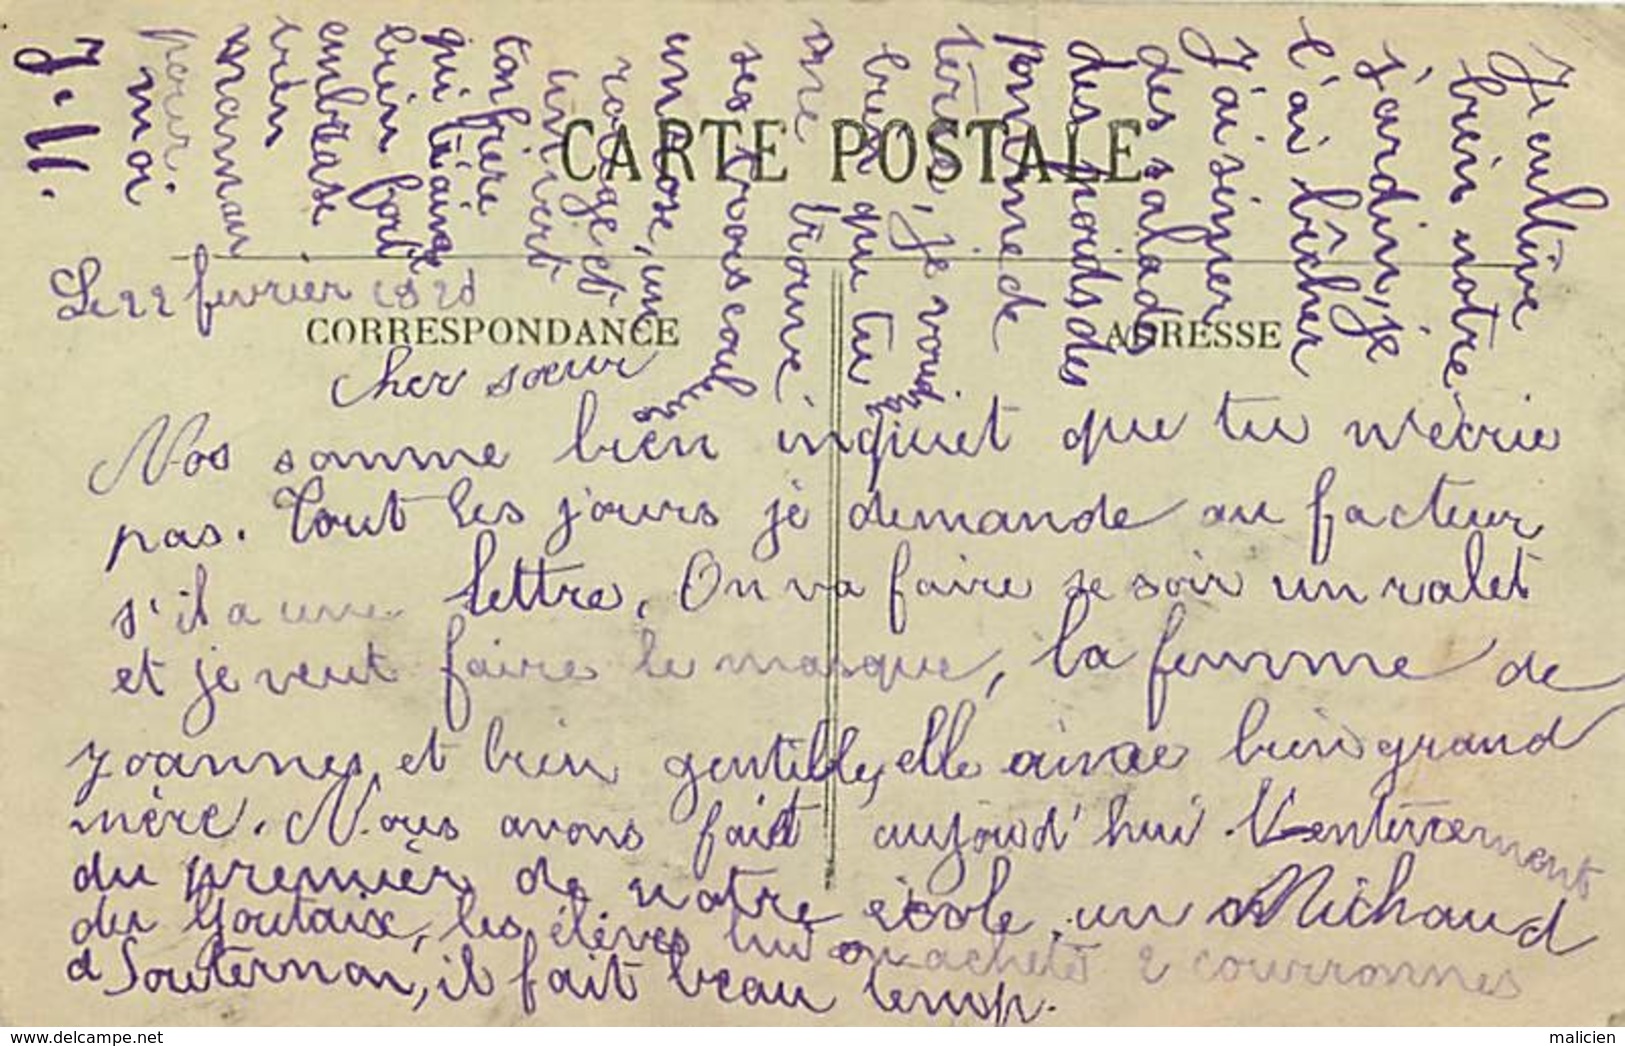 CARTE POSTALE
CORRESPONDANCE
ADRESSE
Le 22 fevrier 1920
cher sœur
Nos somme bien inquiet que tu m'écrie
pas. Tout les jours je demande au facteur
s'il a une lettre. On va faire se soir un ralet
et je veut faire le masque, la femme de
Joannes et bien gentille, elle aime bien grand
mère. Nous avons fait aujourd'hui l'enterrement
du premièr de notre école, un Michaud
du Goutaix, les élèves lui on acheté 2 courronnes
a Souternon, il fait beau temsp.
Je cultive
bien notre
jardin, je
l'ai bêcher
j'ai semer
des salads
des poids des
pomme de
tères, je voudrai
bien que tu
me trouve
ses trois couleurs
un rose, un
rouge et
un vert
ton frere
qui t'aime
bien fort
embrasse
bien
maman
pour
moi.
J. V.
delcampe.net
malicien